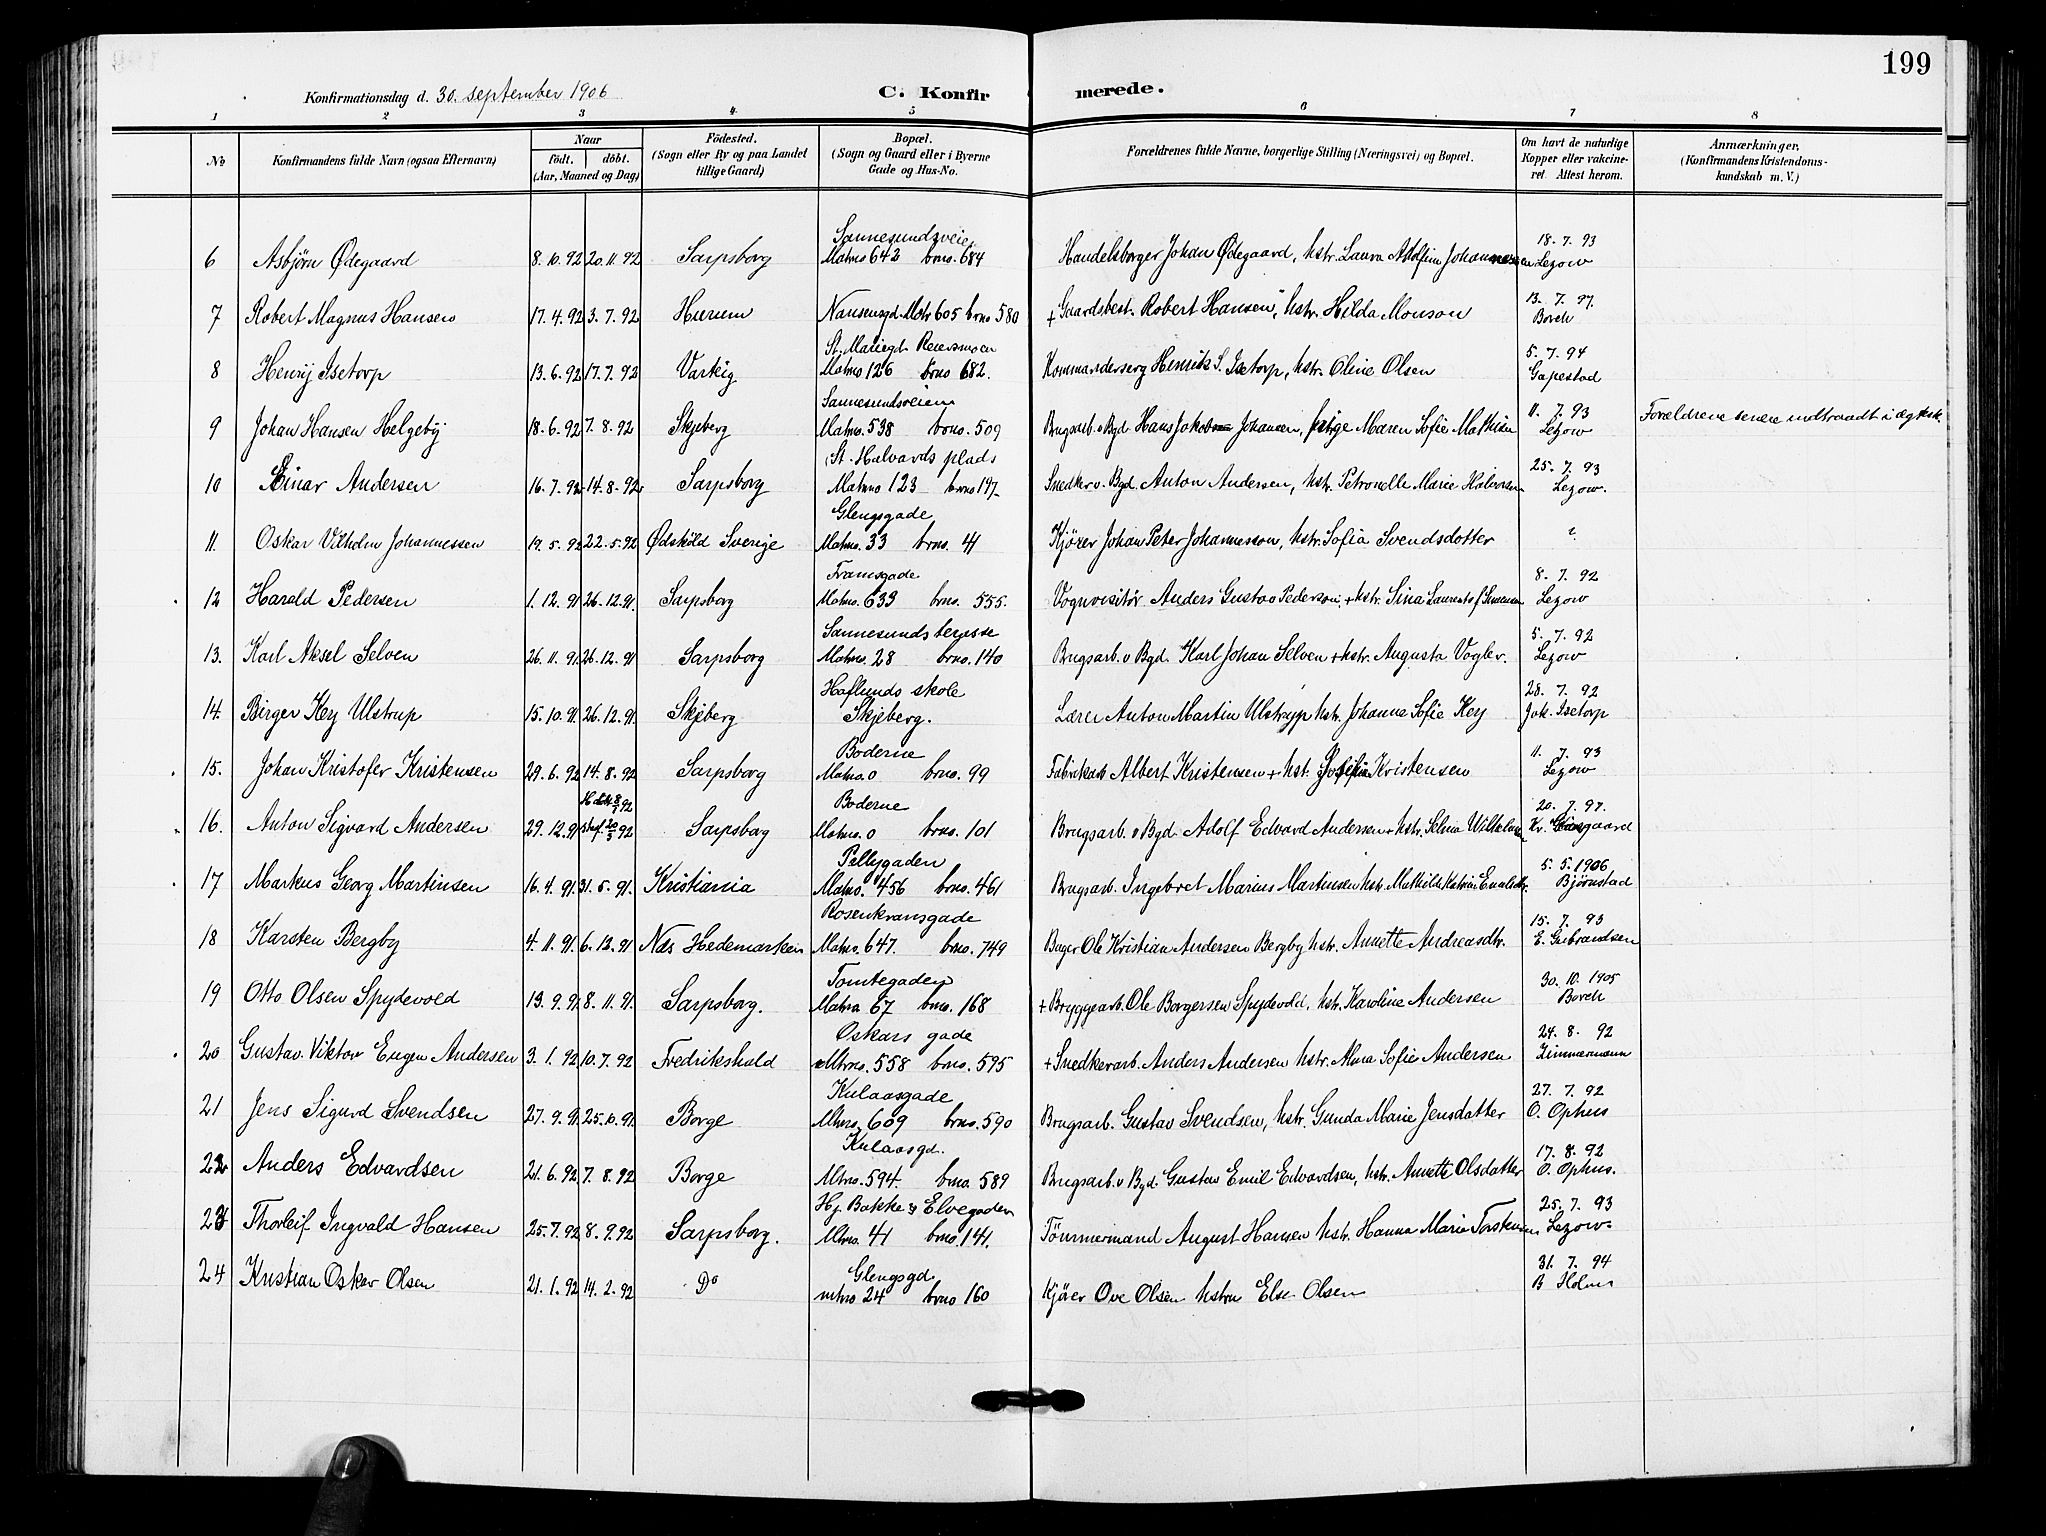 199
Konfirmationsdag d. 30. september 1906 C. Konfir merede.
1 2 3 4. 5 6 7 8
No Konfirmandens fulde Navn (ogsaa Efternavn) Naar født. døbt. (Aar, Maaned og Dag) Fødested. (Sogn eller By og paa Landet tillige Gaard) Bopæl. (Sogn og Gaard eller i Byerne Gade og Hus-No. Forældrenes fulde Navne, borgerlige Stilling (Næringsvei) og Bopæl. Om havt de naturlige Kopper eller vakcineret. Attest herom. Anmærkninger. (Konfirmandens Kristendomskundskab m. V.)
Sannesundsveien 18. 7. 93
6 Asbjørn Ødegaard 8. 10. 92 20. 11. 92 Sarpsborg Matrno 642 brno. 684 Handelsborger Johan Ødegaard, hstr. Laura Johannessen Lezow
13. 7. 97.
7 Robert Magnus Hansen 17. 4. 92 3. 7. 92 Hurum Nansensgd. Matr 605 brno 580 + Gaardsbest. Robert Hansen, hstr. Hilda Monson Borch
St. Mariegd. Reiersmoen 5. 7. 94
8 Henrij Isetorp 13. 6. 92 17. 7. 92 Varteig Matrno 126 brno 682. Kommanderserg Henrik S. Isetorp, hstr. Oline Olsen Gapestad
Sannesundsveien 11. 7. 93
9 Johan Hansen Helgeby 18. 6. 92 7. 8. 92 Skjeberg Matrno. 538 brno. 509 Brugsarb. v Bgd. Hans Johansen, pige Maren Sofie Mathisen Lezow Forældrene senere indtraadt i ægtesk.
St. Halvards plads 25. 7. 93
10 Einar Andersen 16. 7. 92 14. 8. 92 Sarpsborg Matrno 123 brno 197 Snedker v. Bgd. Anton Andersen, hstr. Petronelle Marie Halvorsen Lezow.
Glengsgade
11. Oskar Vilhelm Johannessen 19. 5. 92 22. 5. 92 Ødskøld Sverige Matrno. 33 brno. 41 Kjører Johan Peter Johannesson, hstr. Sofia Svendsdotter ?
Framsgade 8. 7. 92
12 Harald Pedersen 1. 12. 91 26. 12. 91. Sarpsborg Matrno. 633 brno. 555. Vognvisitør Anders Gustav Pederson, + hstr. Sina Lezow
Sannesunds brygge 5. 7. 92
13. Karl Aksel Selven 26. 11. 91. 26. 12. 91 Sarpsborg Matrno. 28 brno. 140 Brugsarb. v Bgd. Karl Johan Selven + hstr. Augusta Vogler. Lezow
Haflunds skole 28. 7. 92
14. Birger Key Ulstrup 15. 10. 91. 26. 12. 91. Skjeberg Skjeberg. Lærer Anton Martin Ulstrupp hstr. Johanne Sofie Key Joh. Isetorp
Boderne 11. 7. 93
15. Johan Kristofer Kristensen 29. 6. 92 14. 8. 92 Sarpsborg Matrno. 0 brno. 99 Fabrikarb Albert Kristensen + hst. Kristensen Lezow
8/1 92 Boderne 20. 7. 97.
16. Anton Sigvard Andersen 29. 12. 91 stadf. 20/3 92 Sarpsborg Matrno. 0 brno. 101 Brugsarb. v Bgd. Adolf Edvard Andersen + hstr. Selma Kr.
Pellygaden 5. 5. 1906
17 Markus Georg Martinsen 16. 4. 91. 31. 5. 91. Kristiania Matrno. 456 brno. 461 Brugsarb. Ingebret Marius Martinsen hstr. Mathilde Bjørnstad
Rosenkransgade 15. 7. 93
18 Karsten Bergby 4. 11. 91. 6. 12. 91 Næs Hedemarken Matrno. 647. brno. 749 Bager Ole Kristian Andersen Bergby hstr. Annette Andreasdtr. E. Gubrandsen
Tomtegaden 30. 10. 1905
19 Otto Olsen Spydevold 13. 9. 91 8. 11. 91. Sarpsborg. Matrno 67 brno. 168 + Bryggearb. Ole Borgersen Spydevold, hstr. Karoline Andersen Borch
Oskars gade 24. 8. 92
20 Gustav Viktor Eugen Andersen 3. 1. 92 10. 7. 92 Fredrikshald Mtrno. 558 brno. 595 + Snedkerarb. Anders Andersen hstr. Alma Sofie Andersen Zimmermann
Kulaasgade 27. 7. 92
21 Jens Sigurd Svendsen 27. 9. 91 25. 10. 91. Borge Mtrno. 609 brno. 590 Brugsarb. Gustav Svendsen, hstr. Gunda Marie Jensdatter O. Ophus
Kulaasgd. 17. 8. 92
22 Anders Edvardsen 21. 6. 92 7. 8. 92 Borge Mtrno. 594. brno. 589 Brugsarb. v Bgd. Gustav Emil Edvardsen, hstr. Annette Olsdatter O. Ophus.
Hj Bakke & Elvegaden 25. 7. 93
23 Thorleif Ingvald Hansen 25. 7. 92 8. 9. 92 Sarpsborg. Mtrno. 41 brno. 141. Tømmermand August Hansen hstr. Hanna Marie Torstensen Lezow
Glengsgd 31. 7. 94
24 Kristian Oskar Olsen 21. 1. 92 14. 2. 92 Do mtrno 24 brno 160 Kjører Ove Olsen hstru Else Olsen B Holm